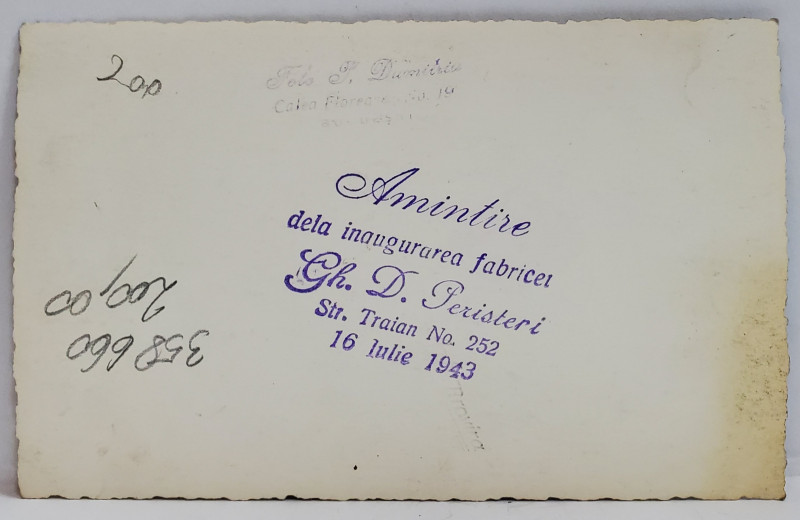 200
Foto S. Dumitriu
Calea No. 19
Amintire
dela inaugurarea fabricei
Gh. D. Peristeri
Str. Traian No. 252
16 Iulie 1943
200,00
358660